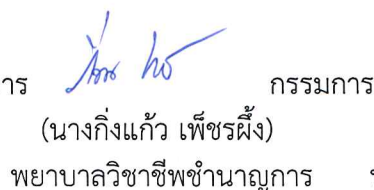 าร กรรมการ
(นางกิ่งแก้ว เพ็ชรผึ้ง)
พยาบาลวิชาชีพชำนาญการ